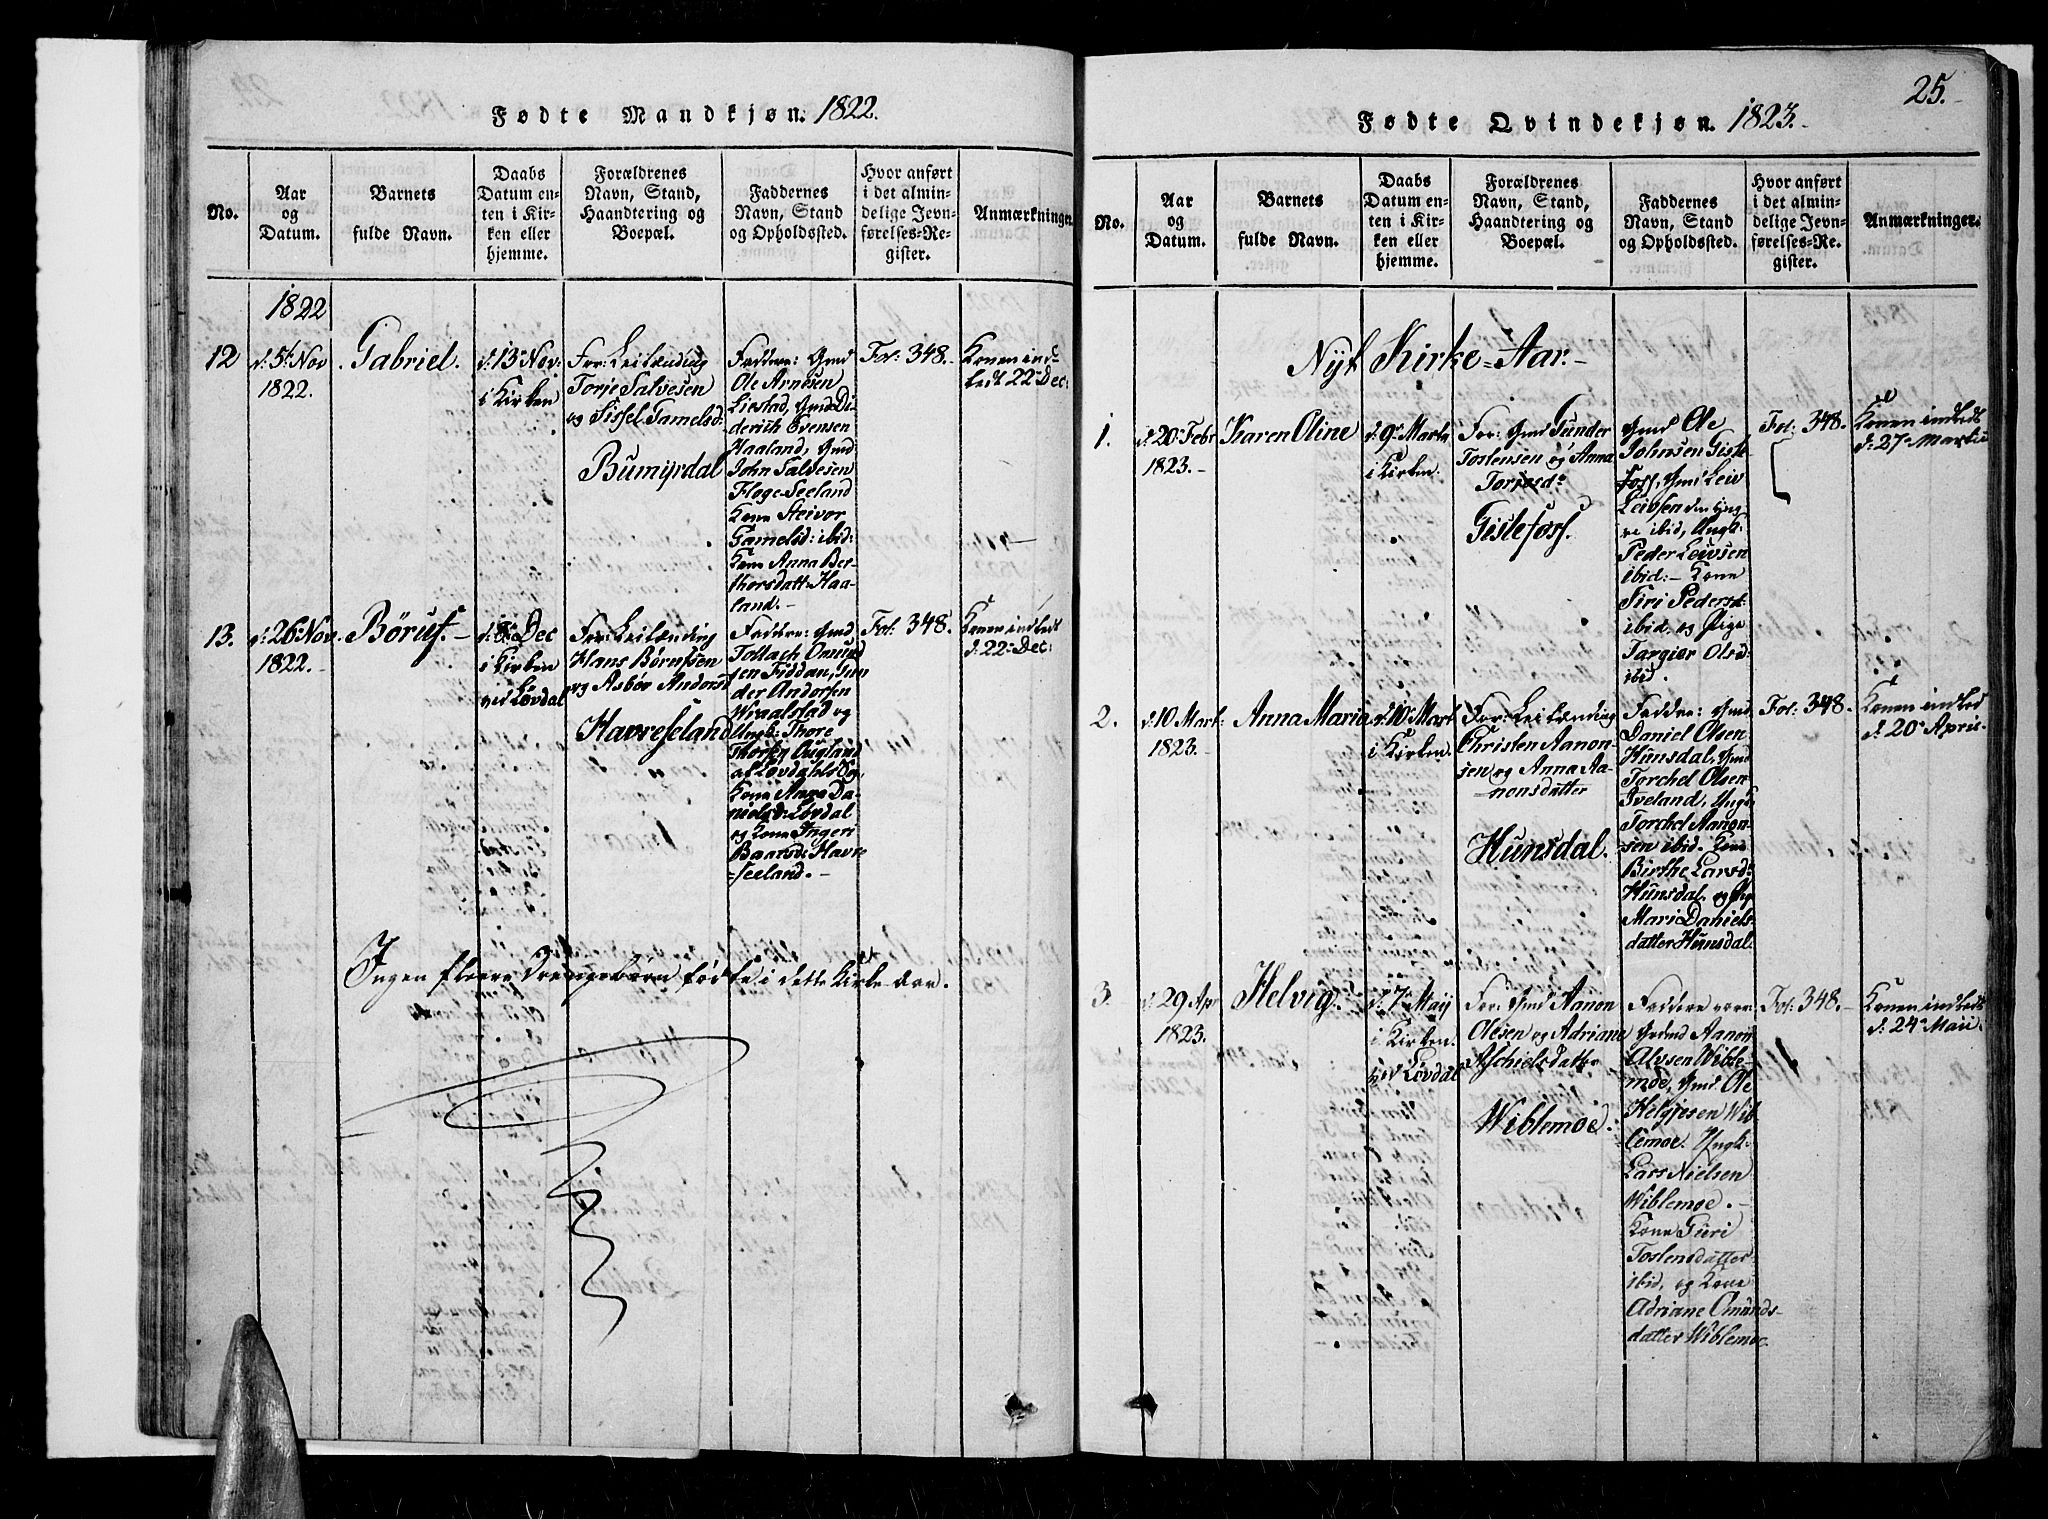 Fødte Mandkjøn. 1822.
No.
Aar
og
Datum.
Barnets
fulde Navn.
Daabs
Datum en-
ten i Kir-
ken eller
hjemme.
Forældrenes
Navn, Stand,
Haandtering og
Boepæl.
Faddernes
Navn, Stand
og Opholdssted.
Hvor anført
i det almin-
delige Jevn-
førelses-Re-
gister.
Anmærkninger.
1822
12
d: 5t Nov
1822.
Gabriel.
d: 13 Nov:
i Kirken
For: Leilænding
Torje Salvesen
og Sissel Gamelsd:
Bumyrdal
Faddere: Gmd
Ole Arnesen
Liestad, Gmd Di-
derich Evensen
Haaland, Gmd
John Salvesen
Floge-Seeland
Kone Steivor
Gamelsd: ibid:
Kone Anna Ber-
thorsdatt: Haa-
land.-
Fol: 348.-
Konen ind-
ledt 22 Dec:
13.
d: 26 Nov.
1822.-
Børuf.-
d: 8 Dec
i Kirken
ved Løvdal
For: Leilænding
Hans Børufsen
og Asbør Andorsd
Havreseland
Faddere: Gmd
Tollach Omund
sen Fiddan, Gun
der Andorsen
Wraalstad og
Ungk: Thore
af Løvdahls Sog,
Kone Anna Da-
nielsd: Løvdal
og Kone Ingeri
Baarsd: Havre
=seeland.-
Fol: 348.
Konen indledt
d: 22 Dec:
Ingen fleere Drengebørn fødte i dette Kirke-Aar.
25.
Fødte Qvindekjøn. 1823.
No.
Aar
og
Datum.
Barnets
fulde Navn.
Daabs
Datum en-
ten i Kir-
ken eller
hjemme.
Forældrenes
Navn, Stand,
Haandtering og
Boepæl.
Faddernes
Navn, Stand
og Opholdssted.
Hvor anført
i det almin-
delige Jevn-
førelses-Re-
gister.
Anmærkninger.
Nyt Kirke-Aar.-
1.
d: 20 Febr
1823.-
Karen Oline
d: 9 Marts
i Kirken.
For: Gmd Gunder
Tostensen og Anna
Torjusd:
Gislefoss.
Gmd Ole
Johnsen Gisle
foss, Gmd Leiv
Leivsen den Yng
re ibid, Ungk:
Peder Leivsen
ibid:- Kone
Siri Pedersd:
ibid. og Pige
Targier Olsd:
ibid.
Fol: 348.
Konen indledt
d: 27 Martii
2.
d: 10 Mart:
1823.-
Anna Maria
d: 10 Mart
i Kirken.
For: Leilænding
Christen Aanon-
sen og Anna Aa-
nonsdatter
Hunsdal.
Faddre: Gmd
Daniel Olsen
Hunsdal, Gmd
Torchel Olsen
Tveland, Ungk
Torchel Aanon-
sen ibid. Kone
Birthe Larsd:
Hunsdal og Pig
Mari Daniels-
datter Hunsdal.
Fol: 348.-
Konen indled
d: 20 April.
3.
d: 29 Apr
1823.
Helvig.
d: 7 Maij
i Kirken.
ved Løvdal
For: Gmd Aanon
Olesen og Adriane
Aschielsdatter
Wiblemoe.
Faddere vare
Gmd Aanon
Alvsen Wible-
moe, Gmd Ole
Helgjesen Wib
lemoe. Ungk:
Lars Nielsen
Wiblemoe.-
Kone Guri
Tostensdatter
ibid, og Kone
Adriane Omunds-
datter Wiblemoe
Fol: 348.-
Konen indledt
d: 24 Maii.